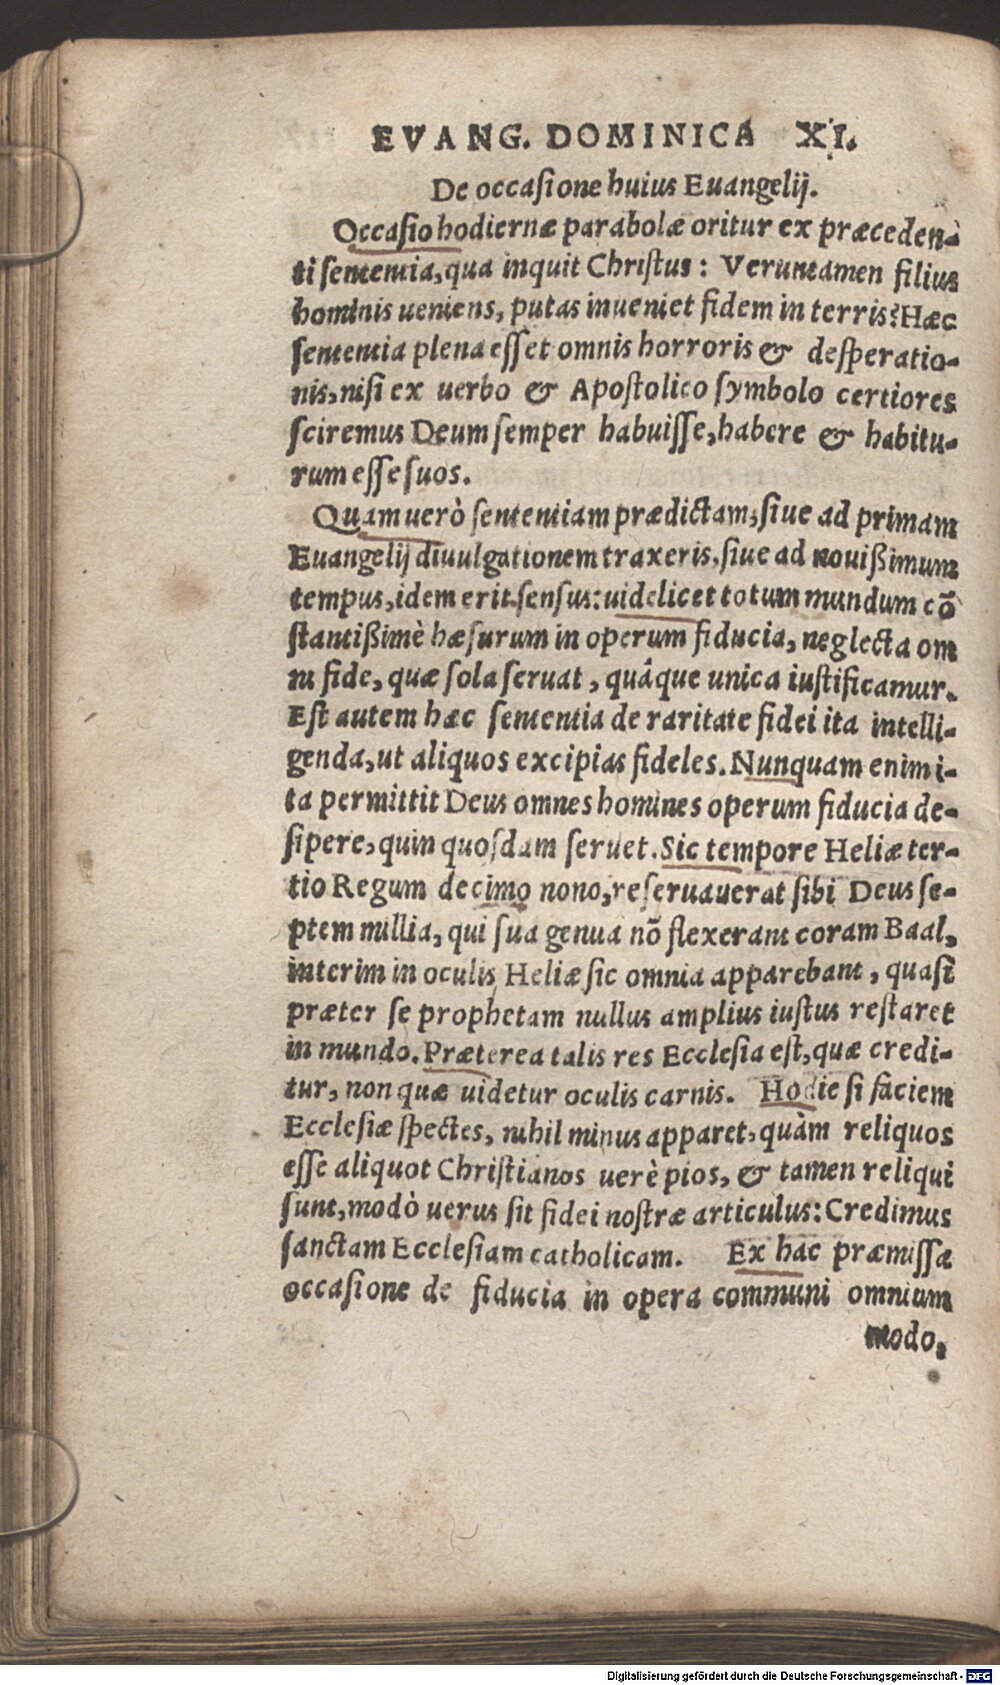 EVANG. DOMINICA XI.
De occasione huius Euangelij.
Occasio hodiernæ parabolæ oritur ex præceden-
ti sententia, qua inquit Christus: Veruntamen filius
hominis ueniens, putas inueniet fidem in terris? Hæc
sententia plena esset omnis horroris & desperatio-
nis, nisi ex uerbo & Apostolico symbolo certiores
sciremus Deum semper habuisse, habere & habitu-
rum esse suos.
Quam uerò sententiam prædictam, siue ad primam
Euangelij diuulgationem traxeris, siue ad nouißimum
tempus, idem erit sensus: uidelicet totum mundum cō
stantißimè hæsurum in operum fiducia, neglecta om
ni fide, quæ sola seruat, quâque unica iustificamur.
Est autem hæc sententia de raritate fidei ita intelli-
genda, ut aliquos excipias fideles. Nunquam enim i-
ta permittit Deus omnes homines operum fiducia de-
sipere, quin quosdam seruet. Sic tempore Heliæ ter-
tio Regum decimo nono, reseruauerat sibi Deus se-
ptem millia, qui sua genua nō flexerant coram Baal,
interim in oculis Heliæ sic omnia apparebant, quasi
præter se prophetam nullus amplius iustus restaret
in mundo. Præterea talis res Ecclesia est, quæ credi-
tur, non quæ uidetur oculis carnis. Hodie si faciem
Ecclesiæ spectes, nihil minus apparet, quàm reliquos
esse aliquot Christianos uerè pios, & tamen reliqui
sunt, modò uerus sit fidei nostræ articulus: Credimus
sanctam Ecclesiam catholicam. Ex hac præmissa
occasione de fiducia in opera communi omnium
modo,
Digitalisierung gefördert durch die Deutsche Forschungsgemeinschaft - DFG